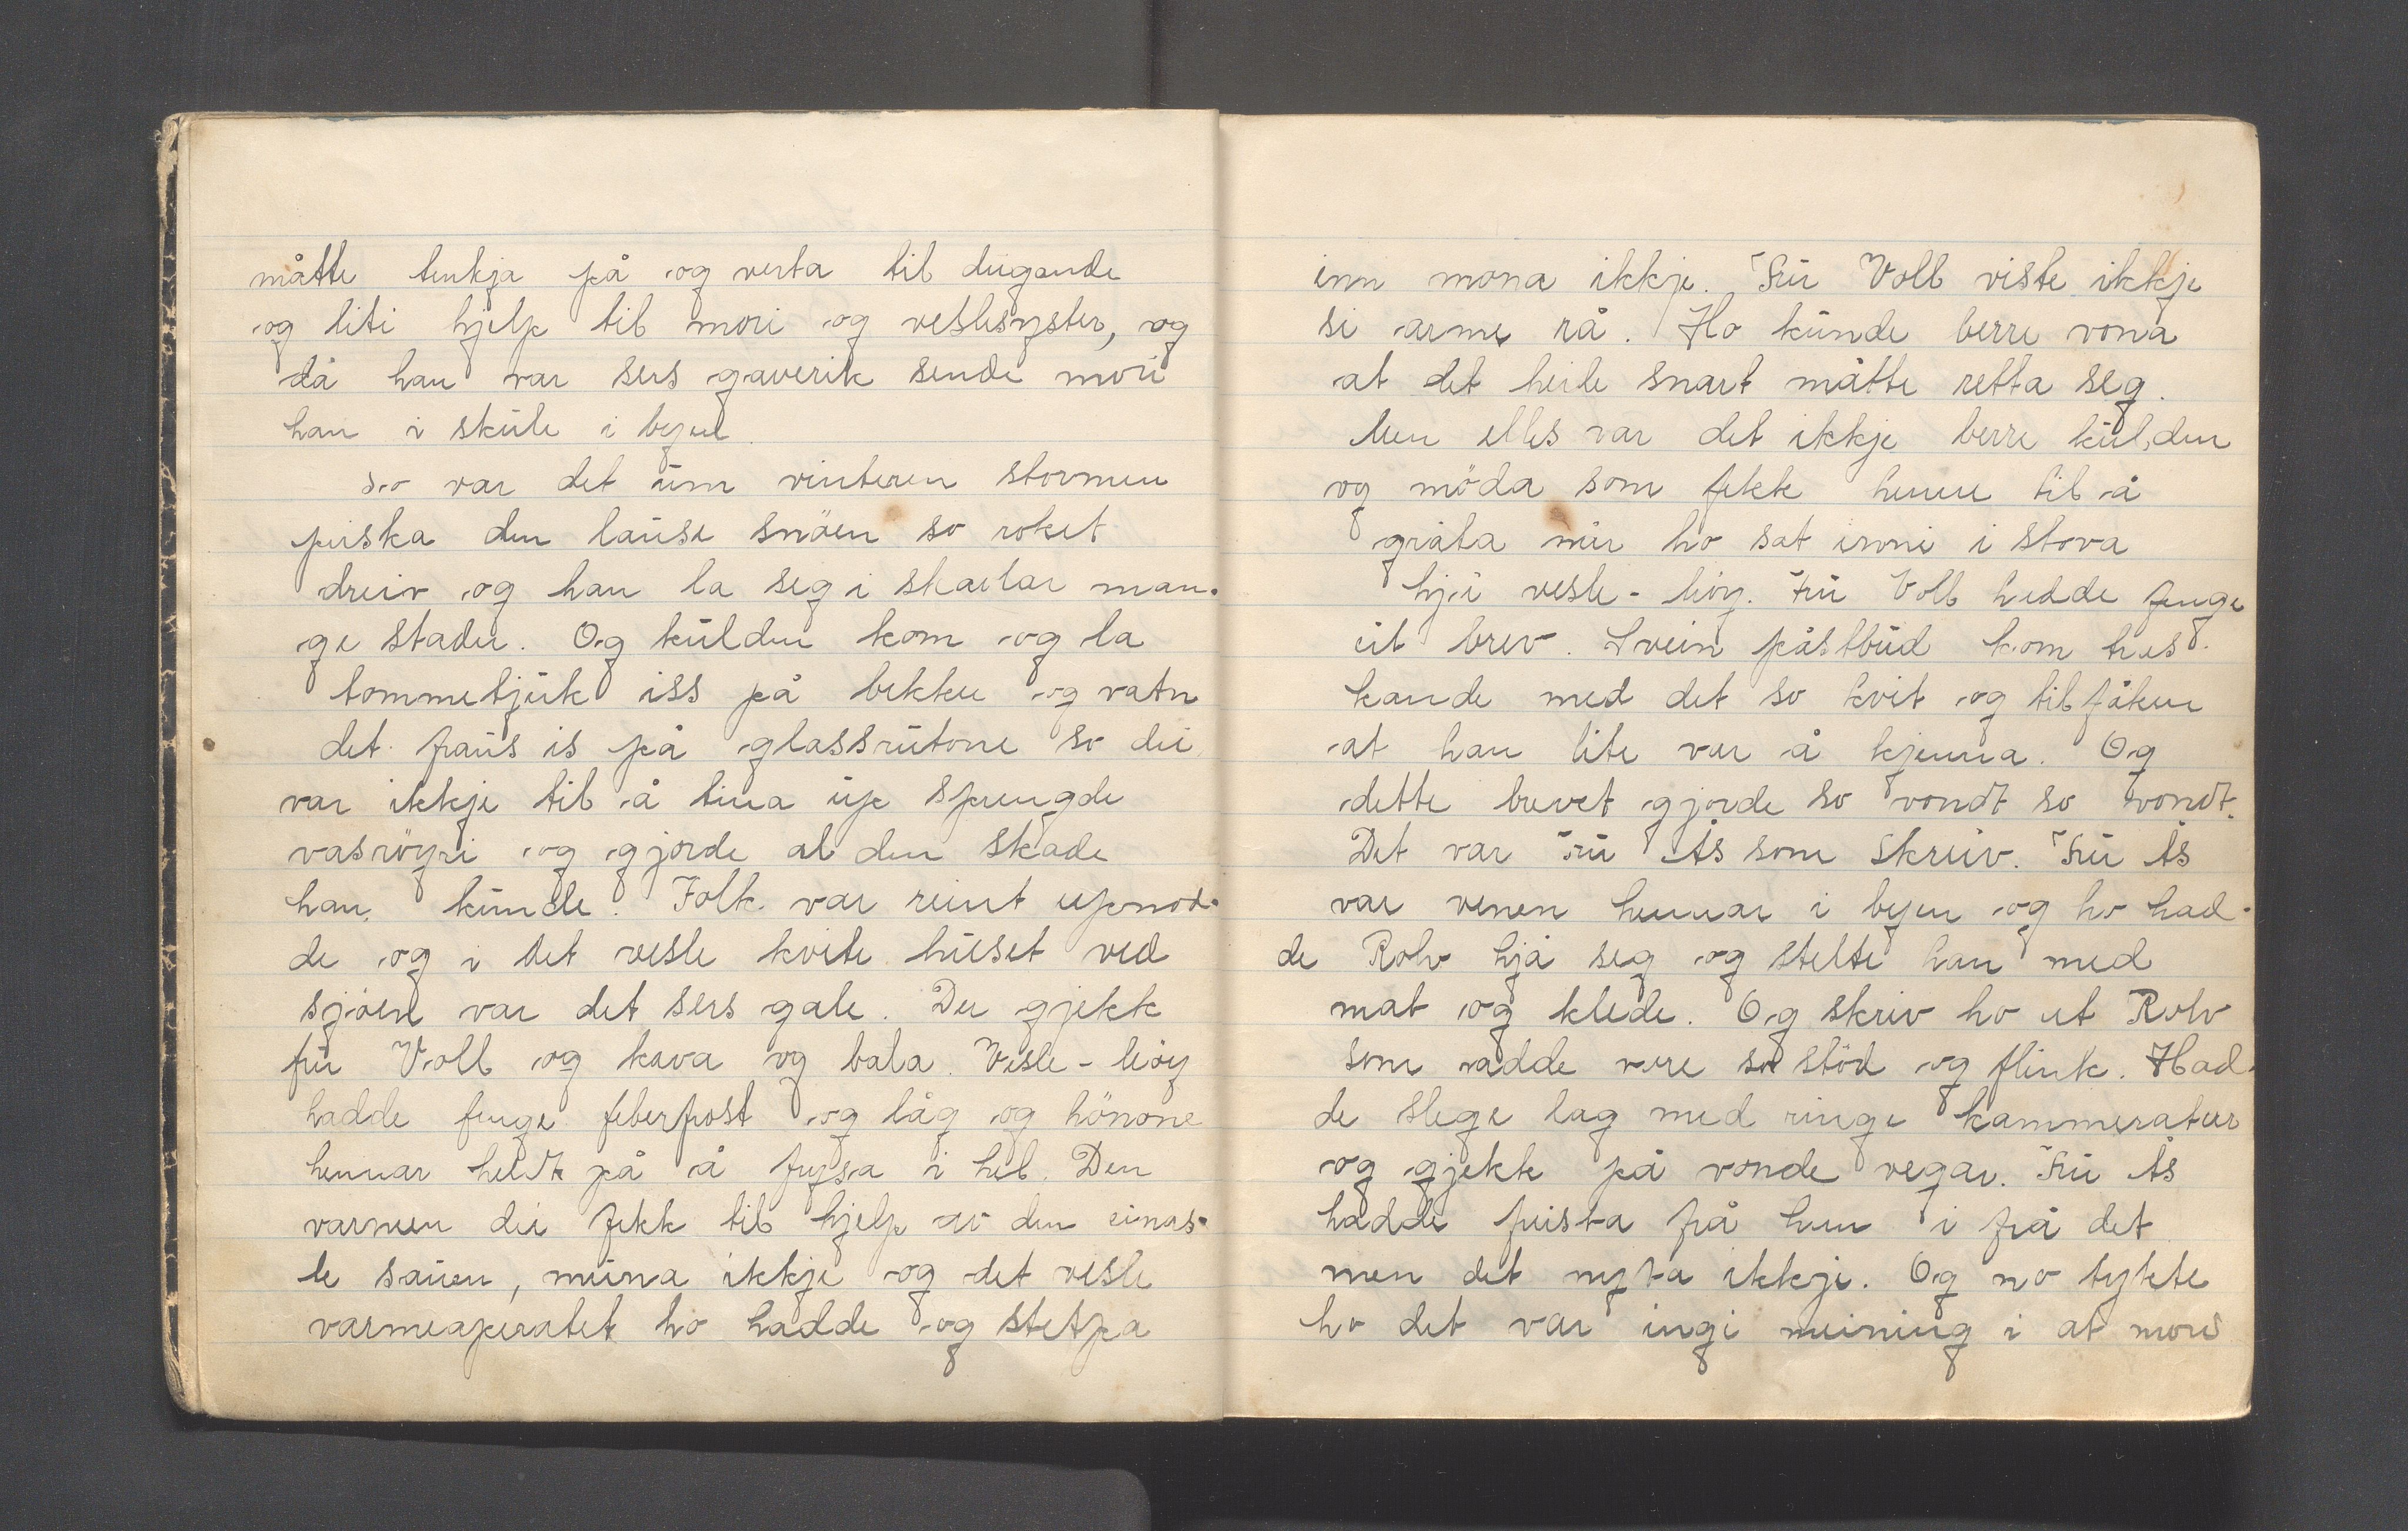 måtte tenkja på og verta til dugande
og liti hjelp til mori og veslesyster, og
då han var sers gaverik sende mori
han i skule i byen.
so var det um vinteren stormen
piska den lause snöen so roket
dreiv og han la seg i skavlar man-
ge stader. Og kulden kom og la
tommetjuk iss på bekker og vatn
det fraus is på glassrutone so dei
var ikkje til å tina up sprengde
vasröyri og gjorde al den skade
han kunde. Folk var reint upnod-
de og i det vesle kvite huset ved
sjöen var det sers gale. Der gjekk
fru Voll og kava og bala. Vesle-
hadde fenge feberfrost og låg og hönone
hennar heldt på å frysa i hel. Den
varmen dei fekk til hjelp av den einas-
te sauen, muna ikkje og det vesle
varmeaperatet ho hadde og stetpa
inn mona ikkje. Fru Voll viste ikkje
si arme rå. Ho kunde berre vona
at det heile snart måtte retta seg.
Men elles var det ikkje berre kulden
og möda som fekk henne til å
gråta når ho sat inne i stova
hjå vesle- Fru Voll hadde fenge
eit brev. Svein påstbud kom tras-
kande med det so kvit og tilfåken
at han lite var å kjenna. Og
dette brevet gjorde so vondt so vondt.
Det var Fru Ås som skreiv. Fru Ås
var venen hennar i byen og ho had-
de Rolv hjå seg og stelte han med
mat og klede. Og skriv ho at Rolv
som adde vore so stöd og flink. Had-
de slege lag med ringe kammeratar
og gjekk på vonde vegar. Fru Ås
hadde freista få hen i frå det
men det nyta ikkje. Og no tykte
ho det var ingi meining i at mori